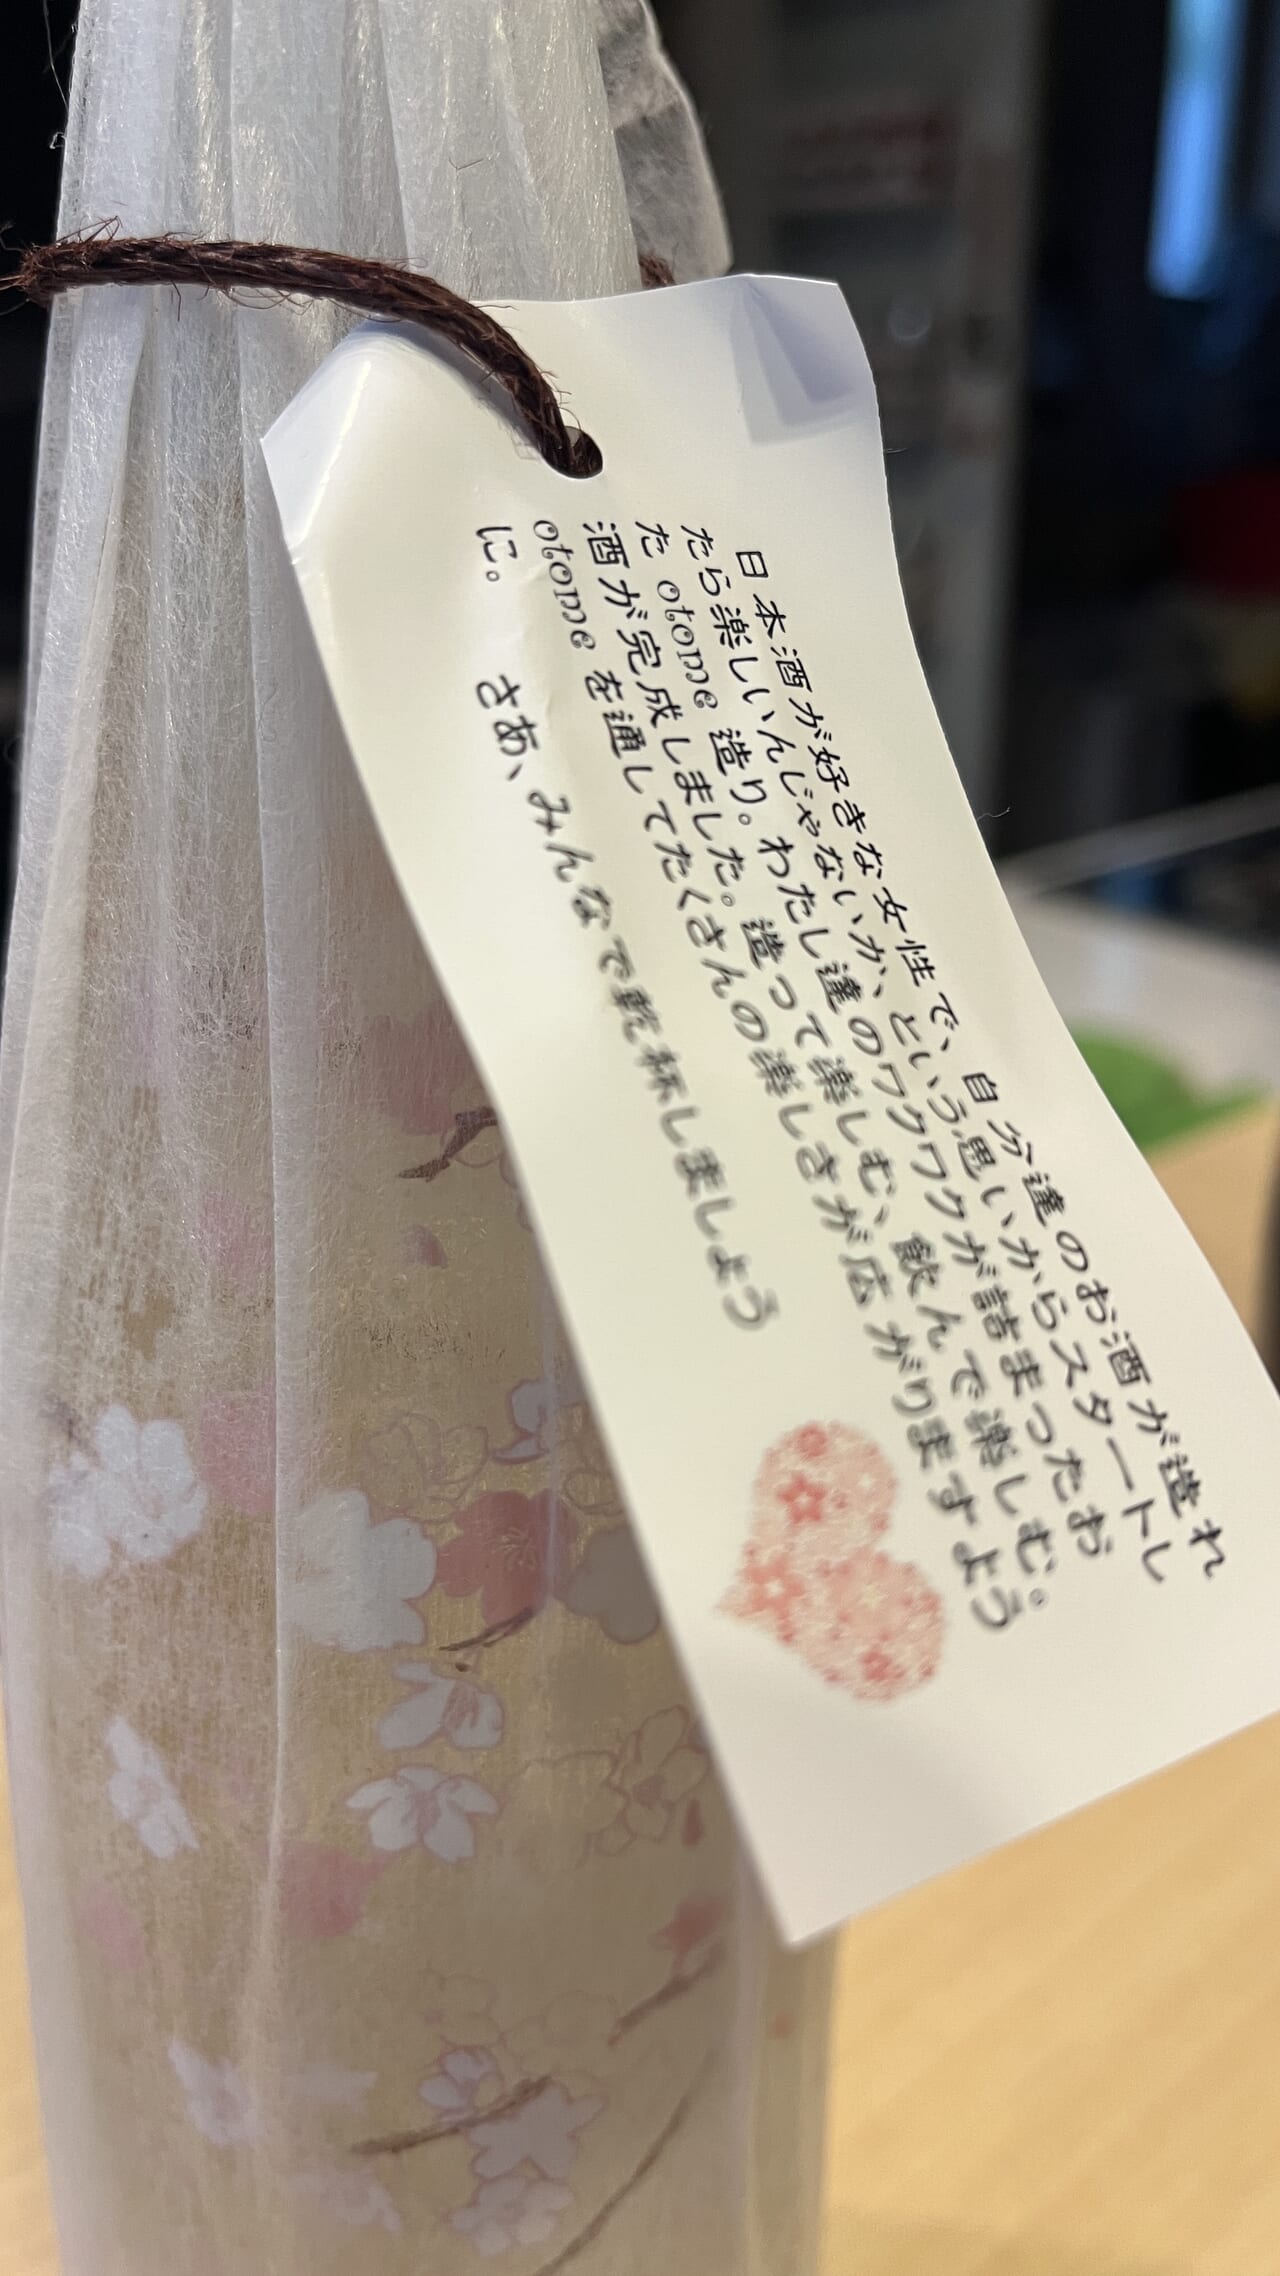 日本酒が好きな女性で、自分達のお酒が造れ
たら楽しいんじゃないか、という思いからスタートし
た otome 造り。わたし達のワクワクが詰まったお
酒が完成しました。造って楽しむ、飲んで楽しむ。
otome を通してたくさんの楽しさが広がりますよう
に。
さあ、みんなで乾杯しましょう